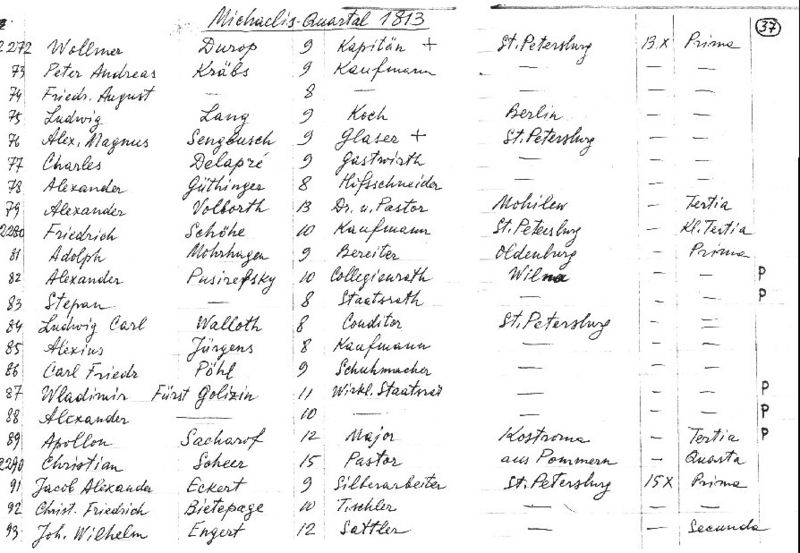 Michaelis-Quartal 1813 37
2272 Wollmer Durop 9 Kapitän + St. Petersburg 13.X Prima
73 Peter Andreas Kräbs 9 Kaufmann — — —
74 Friedr. August — 8 — — — —
75 Ludwig Lang 9 Koch Berlin — —
76 Alex. Magnus Sengbusch 9 Glaser + St. Petersburg — —
77 Charles Delapré 9 Gastwirth — — —
78 Alexander Güthinger 8 Hifsschneider — — —
79 Alexander Volborth 13 Dr. u. Pastor Mohilew — Tertia
2280 Friedrich Schöhe 10 Kaufmann St. Petersburg — Kl. Tertia
81 Adolph Mohrhagen 9 Bereiter Oldenburg — Prima
82 Alexander Pusirefsky 10 Collegienrath Wilna — — P
83 Stepan — 8 Staatsrath — — — P
84 Ludwig Carl Walloth 8 Conditor St. Petersburg — —
85 Alexius Jürgens 8 Kaufmann — — —
86 Carl Friedr Pöhl 9 Schuhmacher — — —
87 Wladimir Fürst Golizin 11 Wirkl. Staatsrat — — — P
88 Alexander — 10 — — — — P
89 Apollon Sacharof 12 Major Kostroma — Tertia P
2290 Christian Scheer 15 Pastor aus Pommern — Quarta
91 Jacob Alexander Eckert 9 Silberarbeiter St. Petersburg 15 X Prima
92 Christ. Friedrich Bietepage 10 Tischler — — —
93 Joh. Wilhelm Engert 12 Sattler — — Secunda